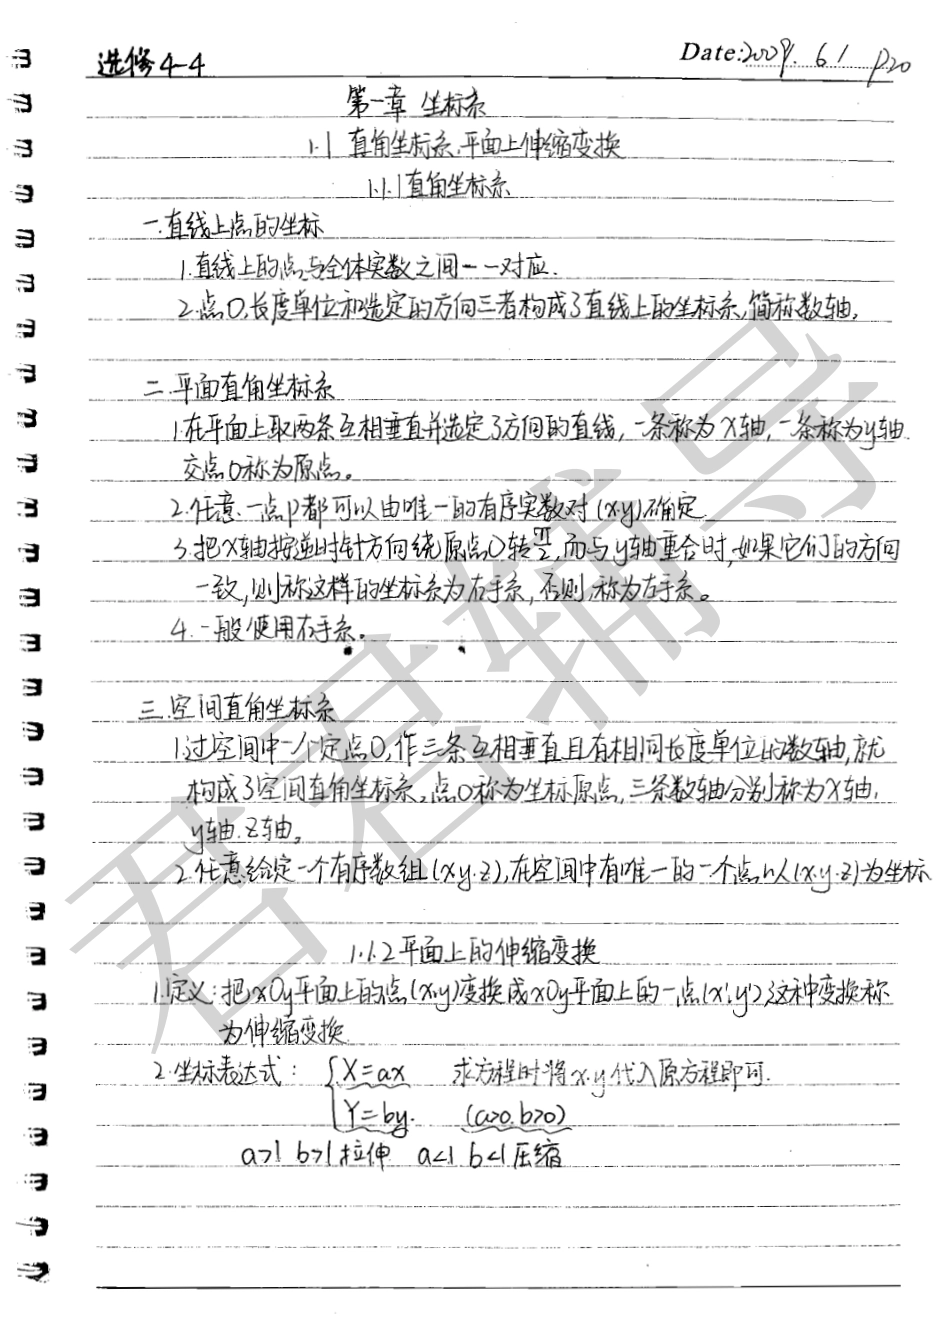 选修4-4
Date: 2009. 6 / P20
第一章 坐标系
1.1 直角坐标系,平面上伸缩变换
1.1.1直角坐标系
一.直线上点的坐标
1.直线上的点与全体实数之间一一对应.
2.点O,长度单位和选定的方向三者构成了直线上的坐标系,简称数轴.
二.平面直角坐标系
1.在平面上取两条互相垂直并选定了方向的直线,一条称为X轴,一条称为y轴.
交点O称为原点。
2.任意一点P都可以由唯一的有序实数对(x.y)确定.
3.把X轴按逆时针方向绕原点O转π/2,而与y轴重合时,如果它们的方向
一致,则称这样的坐标系为右手系,否则,称为左手系。
4.一般使用右手系。
三.空间直角坐标系
1.过空间中一个定点O,作三条互相垂直且有相同长度单位的数轴,就
构成了空间直角坐标系,点O称为坐标原点,三条数轴分别称为X轴,
y轴.Z轴。
2.任意给定一个有序数组(x.y.z),在空间中有唯一的一个点以(x.y.z)为坐标
1.1.2平面上的伸缩变换
1.定义:把xOy平面上的点(x,y)变换成xOy平面上的一点(x',y'),这种变换称
为伸缩变换
2.坐标表达式: {X=ax 求方程时将x.y代入原方程即可.
Y=by. (a>0.b>0)
a>1 b>1拉伸 a<1 b<1压缩
君君辅导